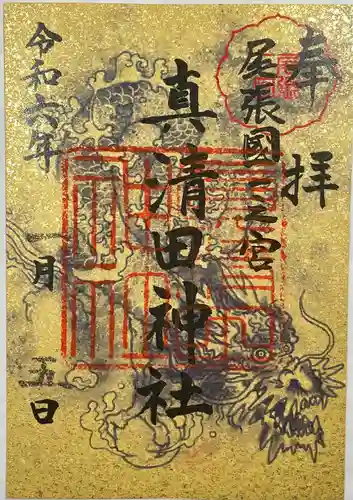 奉拝
尾張國一之宮
真清田神社
令和六年 月 日